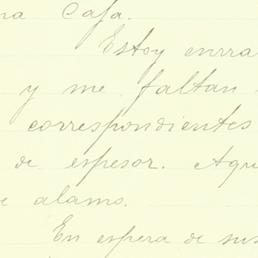 na Casa.
Estoy enrra
y me faltan
correspondientes
de espesor. Aqu
e alamo.
En espera de sus